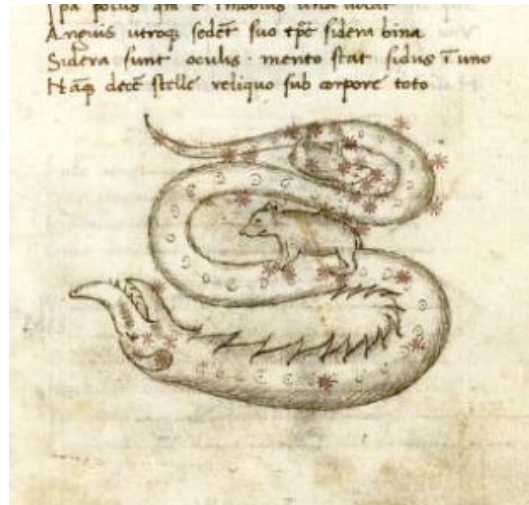 Anguis utroqȝ sedet suo tp̄e sidera bina
Sidera sunt oculis · mento stat sidus ī uno
Naqȝ decē stelle reliquo sub corpore toto